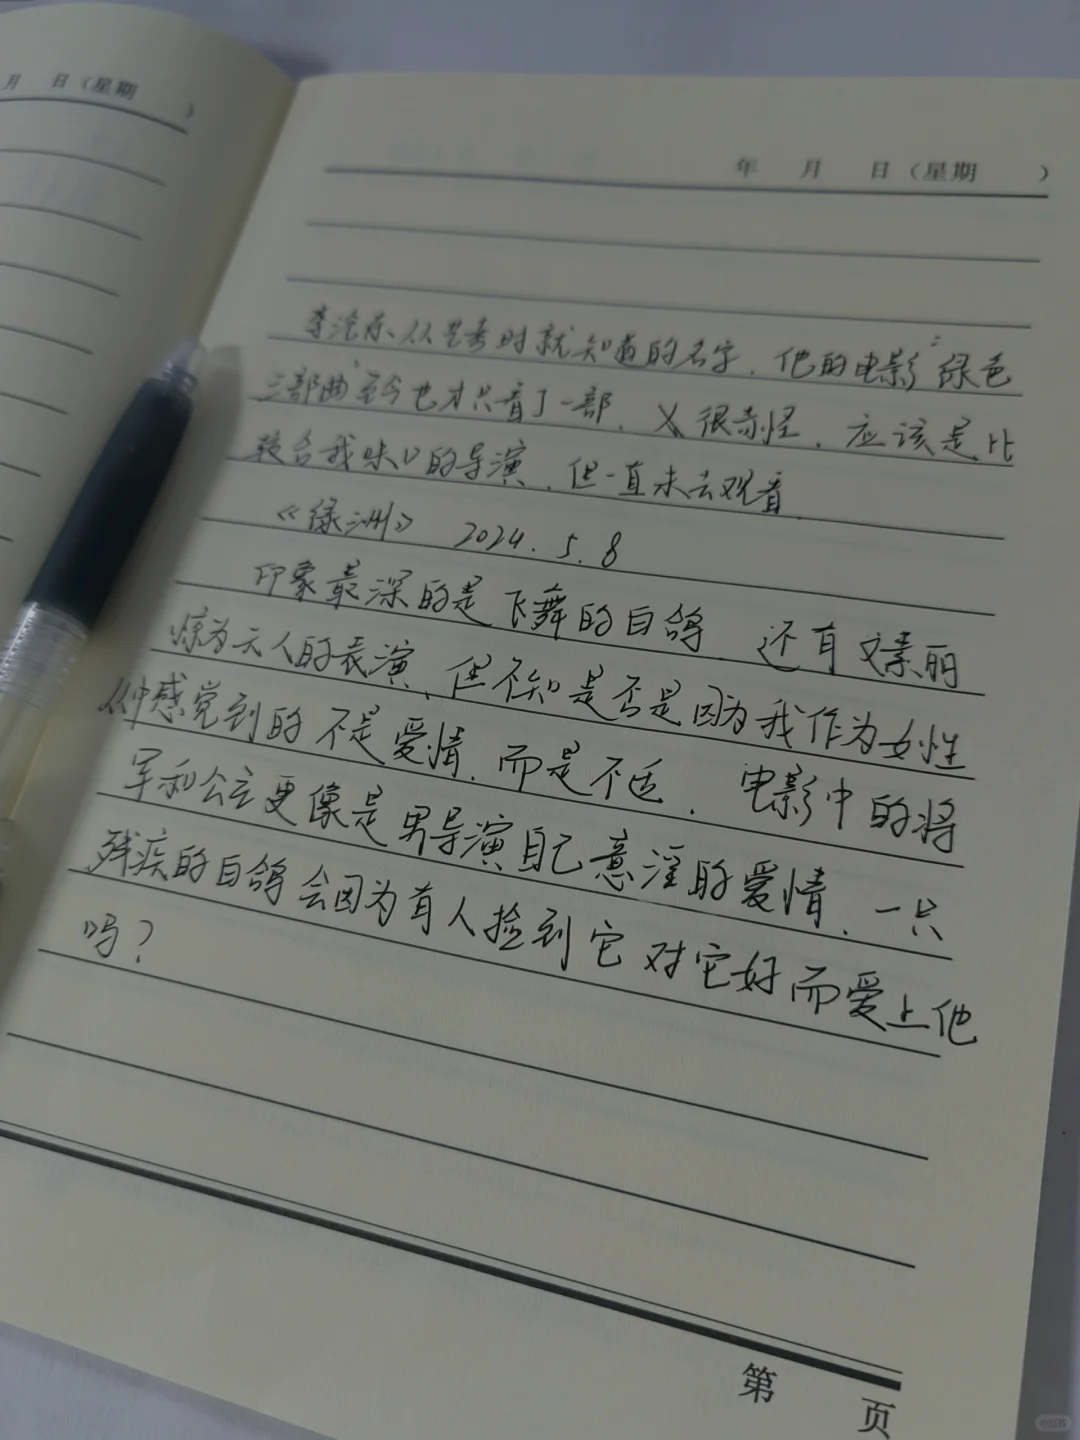 月 日（星期 ）
年 月 日（星期 ）
李沧东从艺考时就知道的名字，他的电影“绿色
三部曲”至今也才只看了一部，很奇怪，应该是比
较合我味口的导演，但一直未去观看
《绿洲》 2024.5.8
印象最深的是飞舞的白鸽，还有文素丽
惊为天人的表演，但不知是否是因为我作为女性
从中感觉到的不是爱情，而是不适，电影中的将
军和公主更像是男导演自己意淫的爱情，一只
残疾的白鸽会因为有人捡到它对它好而爱上他
吗？
第 页
小红书